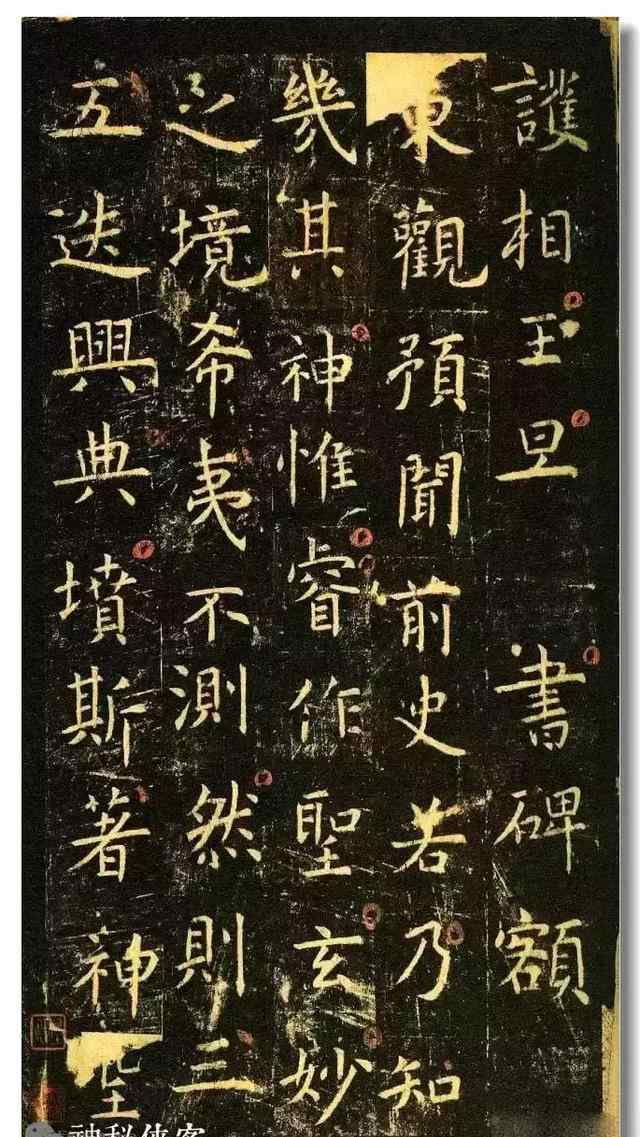 護相王旦 書碑額
東觀預聞前史若乃知
幾其神惟睿作聖玄妙
之境希夷不測然則三
五迭興典墳斯著神
神秘侠客